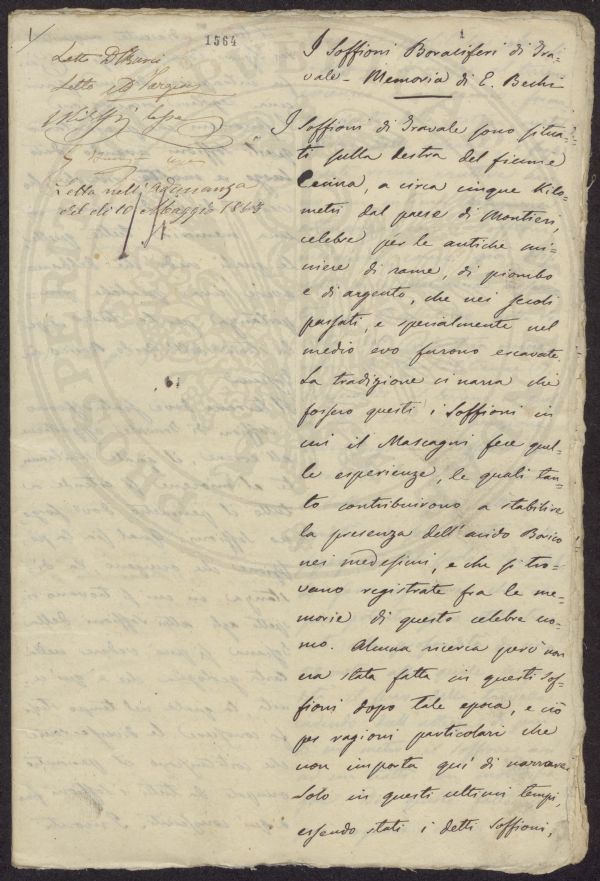 1
1564
1
Letto D Bassi
Letto D Vargas
Letta nell' adunanza
del dì 10 Maggio 1863
I Soffioni Boraciferi di Tra-
vale - Memoria di E. Bechi
I Soffioni di Travale sono situa-
ti sulla destra del fiume
Cecina, a circa cinque Kilo-
metri dal paese di Montieri,
celebre per le antiche mi-
niere di rame, di piombo
e di argento, che nei secoli
passati, e specialmente nel
medio evo furono escavate
La tradizione ci narra che
fossero questi i Soffioni in
cui il Mascagni fece quel-
le esperienze, le quali tan-
to contribuirono a stabilire
la presenza dell' acido Borico
nei medesimi, e che si tro-
vano registrate fra le me-
morie di questo celebre uo-
mo. Alcuna ricerca però non
era stata fatta in questi Sof-
fioni dopo tale epoca, e ciò
per ragioni particolari che
non importa quì di narrare
Solo in questi ultimi tempi,
essendo stati i detti Soffioni,